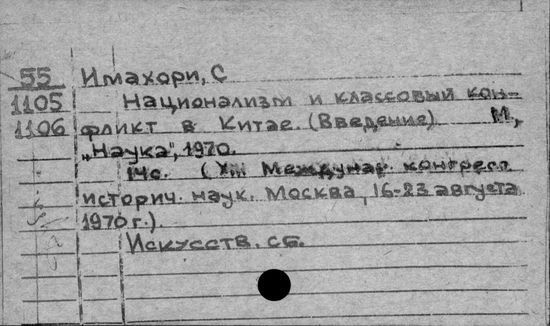 55 Имахори, С
1105 Национализм и классовый кон-
1106 фликт в Китае. (Введение). М.,
„Наука", 1970.
14с. (XIII Междунар. конгресс
историч. наук. Москва, 16-23 августа
1970 г.).
Искусств. сб.